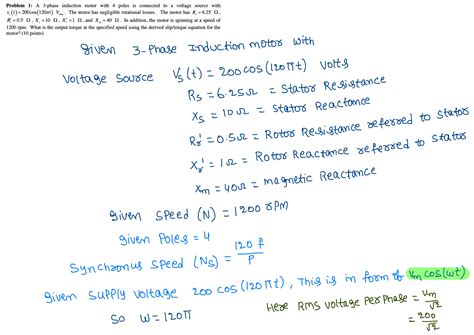 Problem 1: A 3-phase induction motor with 4 poles is connected to a voltage source with
v_s(t)=200cos(120πt) V_rms. The motor has negligible rotational losses. The motor has R_s = 6.25 Ω,
R'_r = 0.5 Ω, X_s = 10 Ω, X'_r = 1 Ω, and X_m = 40 Ω. In addition, the motor is spinning at a speed of
1200 rpm. What is the output torque at the specified speed using the derived slip/torque equation for the
motor? (10 points)
Given 3-Phase Induction motor with
Voltage Source V_s(t) = 200 cos (120πt) Volts
R_s = 6.25Ω = Stator Resistance
X_s = 10Ω = Stator Reactance
R_r' = 0.5Ω = Rotor Resistance referred to Stator
X_r' = 1Ω = Rotor Reactance referred to Stator
X_m = 40Ω = magnetic Reactance
Given Speed (N) = 1200 rpm
Given Poles = 4
Synchronus Speed (N_s) = 120 f / P
Given Supply Voltage 200 cos (120πt), This is in form of V_m cos(ωt)
So W = 120π
Here RMS Voltage Per Phase = V_m / √2
= 200 / √2